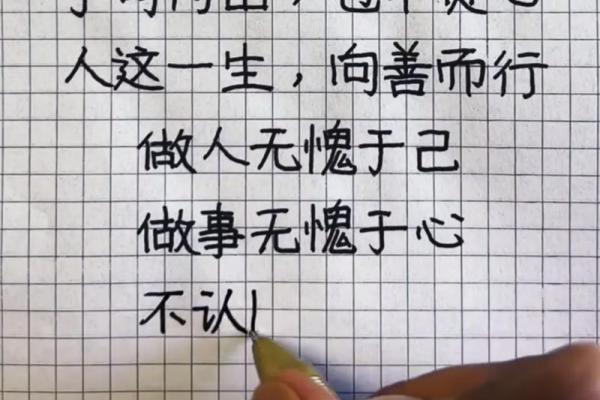 人这一生，向善而行
做人无愧于己
做事无愧于心
不认